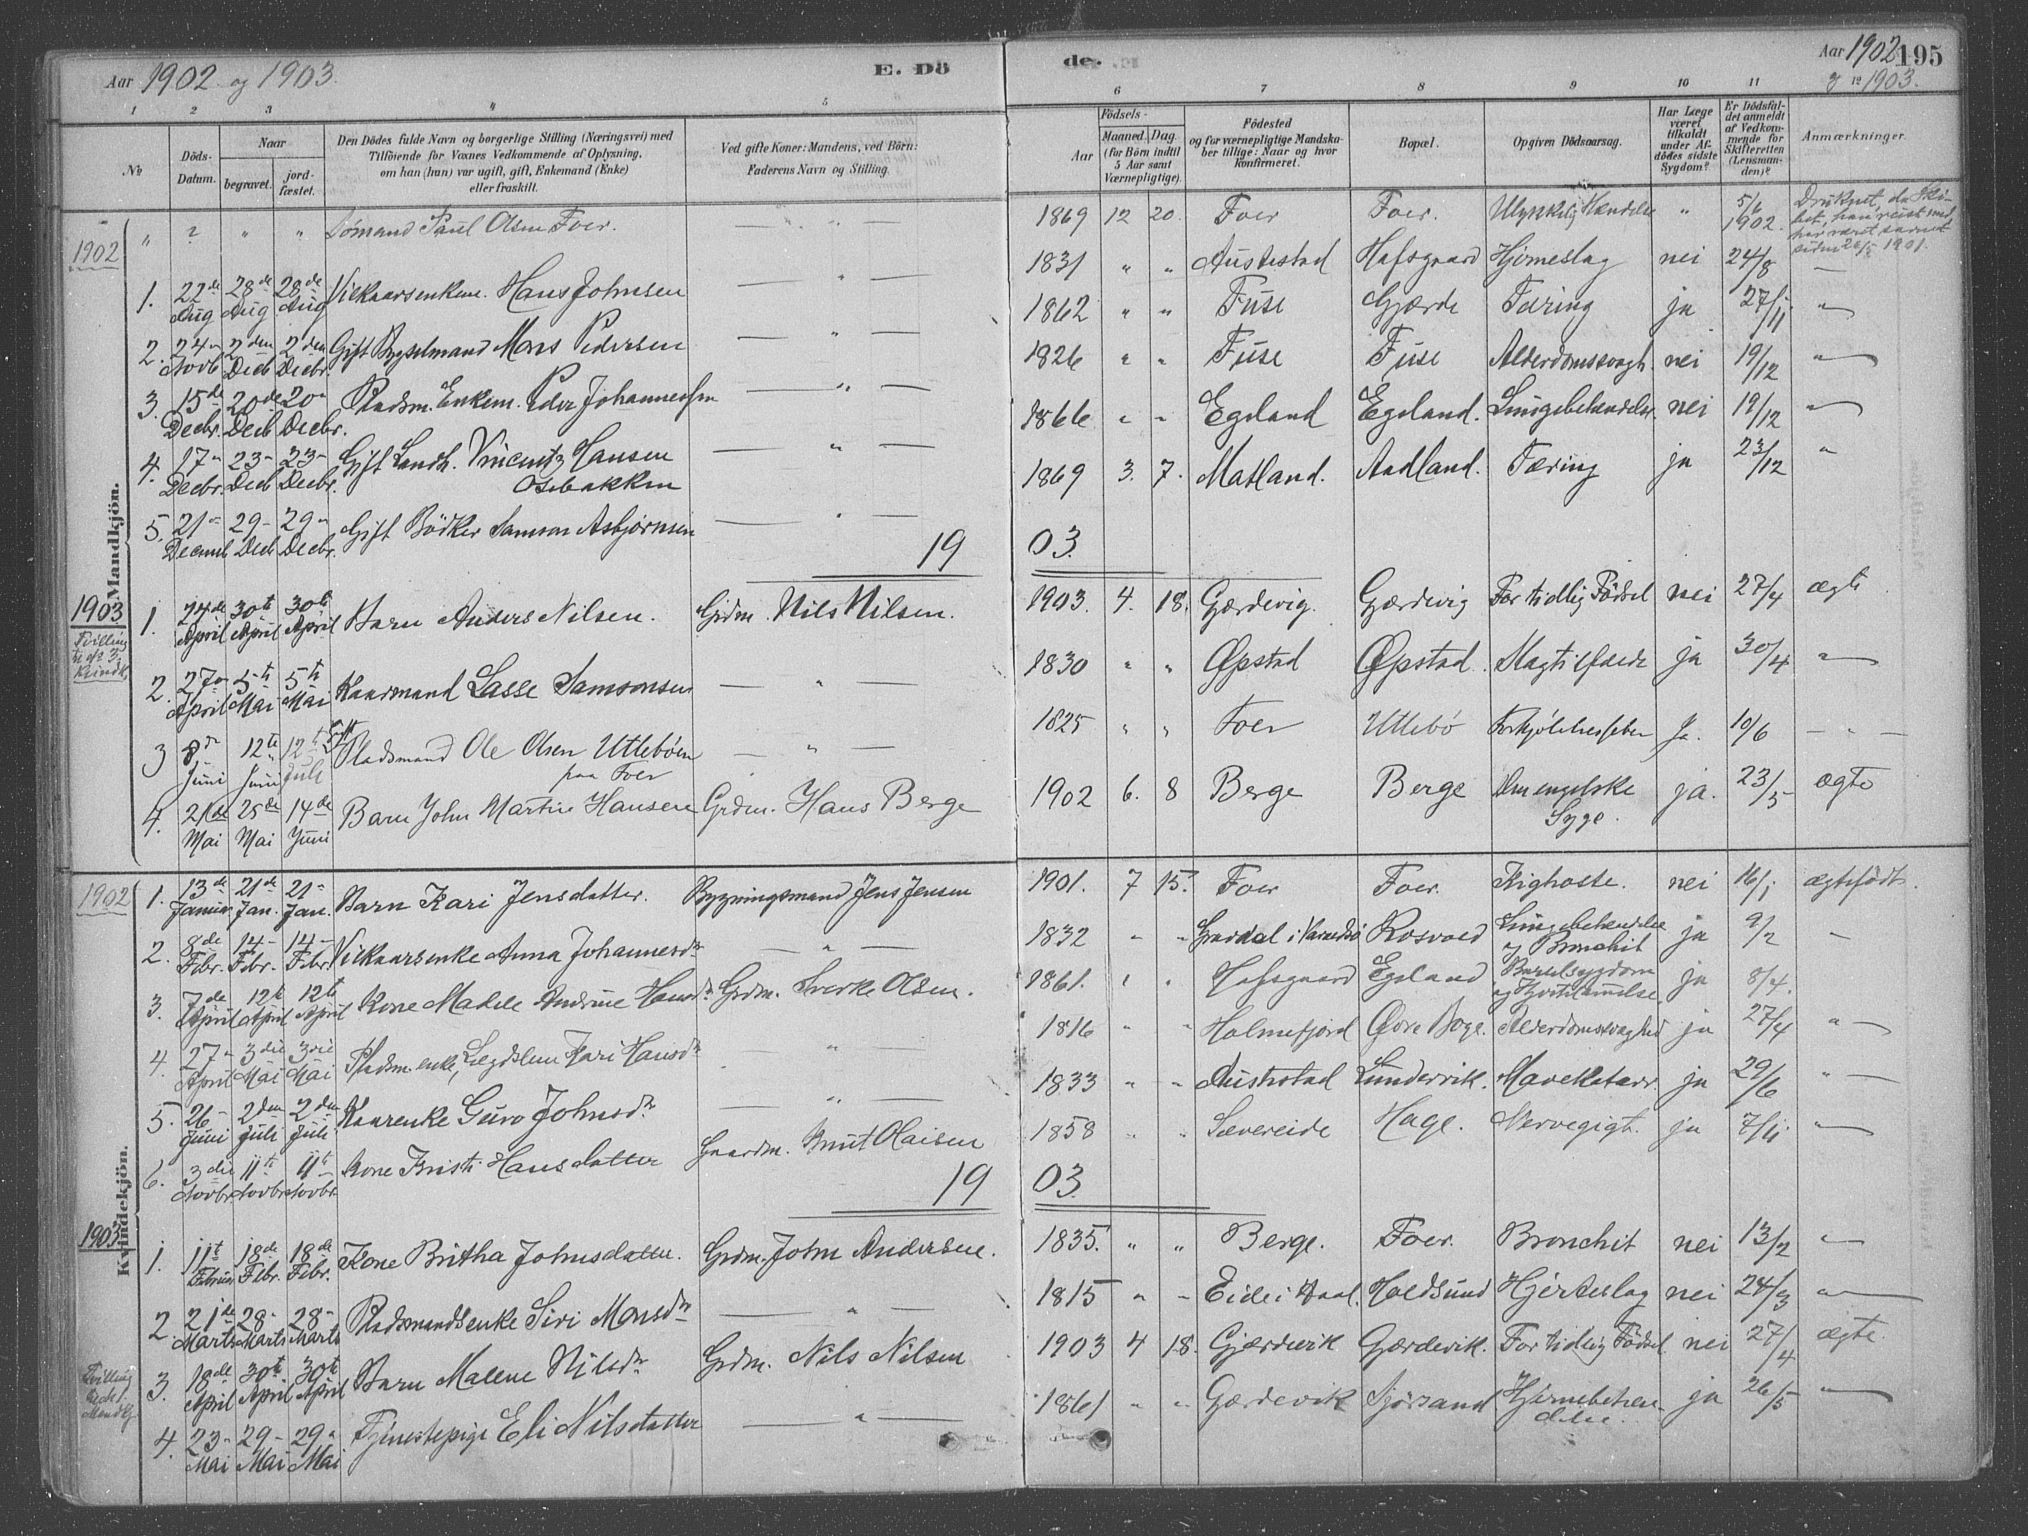 Aar 1902 og 1903. E. Dö
de. Aar 1902 195
og 1903.
1 2 3 4 5
6 7 8 9 10 11 12
No
Döds-Datum.
Naar
begravet.
jordfæstet.
Den Dödes fulde Navn og borgerlige Stilling (Næringsvei) med
Tilföiende for Voxnes Vedkommende af Oplysning,
om han (hun) var ugift, gift, Enkemand (Enke)
eller fraskilt.
Ved gifte Koner: Mandens, ved Börn:
Faderens Navn og Stilling.
Födsels-
Aar
Maaned. Dag.
(for Börn indtil
5 Aar samt
Værnepligtige).
Födested
og for værnepligtige Mandskaber tillige: Naar og hvor
konfirmeret.
Bopæl.
Opgiven Dödsaarsag.
Har Læge
været
tilkaldt
under Afdödes sidste
Sygdom?
Er Dödsfaldet anmeldt
af Vedkommende for
Skifteretten
(Lensmanden)?
Anmærkninger.
Mandkjön.
1902
" ? " " Sömand Poul Olsen Foer. — " — 1869 12 20. Foer Foer. Ulykkelig Hændelse " 5/6 1902. Druknet, da Skibet, han reist med, har været savnet siden 1901.
1. 22de Aug 28de Aug 28de Aug Vilkaarsenkem. Hans Johnsen — " — 1831 " " Austestad Hafsgaard Hjerneslag nei 24/8 —
2. 24 Novb. 2den Decb 2den Decbr. Gift Bygselmand Mons Pedersen — " — 1862 " " Fuse Gjærde Tæring ja 27/11 "
3. 15de Decbr. 20de Decb 20 Decbr. Pladsm. Enkem. Peder Johannessen — " — 1826 " " Fuse Fuse Alderdomssvagh. nei 19/12 "
4. 17 Decbr. 23 Decb 23 Decbr. Gift Landh. Vincentz Hansen Osebakken — " — 1866 " " Egeland Egeland. Lungebetændelse nei 19/12 "
5. 21 Decemb 29 Decb 29 Decbr. Gift Bödker Samson Asbjørnsen — " — 1869 3. 7. Matland. Aadland. Tæring ja 23/12 "
1903.
1903
Tvilling til No 3, Kvindk.
1. 24de April 30te April 30te April Barn Anders Nilsen. Grdm. Nils Nilsen. 1903. 4. 18. Gjærdevig. Gjærdevig For tidlig Födsel nei 27/4 ægte
2. 27 April 5te Mai 5te Mai Kaarmand Lasse Samsonsen — " — 1830 " " Øpstad Øpstad. Slagtilfælde ja 30/4 "
3 8de Juni 12te Juni 12te Juli Pladsmand Ole Olsen Uttebøen paa Foer — " — 1825 " " Foer Uttebö Forkjölelsesfeber Ja. 10/6 — " —
4. 21de Mai 25de Mai 14de Juni Barn John Martin Hansen Grdm. Hans Berge 1902 6. 8 Berge Berge Den engelske Syge. ja. 23/5 ægte
Kvindekjön.
1902
1. 13de Januar 21de Jan. 21 Jan. Barn Kari Jensdatter. Bygningsmand Jens Jensen 1901. 7 15. Foer Foer. Kighoste. nei 16/1 ægtefödt.
2. 8de Febr. 14 Febr. 14 Febr. Vilkaarsenke Anna Johannesdr — " — 1832 " " i Varaldsö Rosvold Lungebetændelse og Bronchit ja 9/2 —
3. 7de April 12te April 12te April Kone Madele Andrine Hansdr. Grdm. Sverke Olsen. 1861. " " Hafsgaard Egeland Barselsygdom og ja 8/4.
4. 27 April 3die Mai 3die Mai Pladsm enke, Lægdslem Kari Hansdr — " — 1816 " " Holmefjord Øvre Boge. Alderdomssvaghed ja 27/4 "
5. 26 Juni 2den Juli 2den Juli Kaarenke Guro Johnsdr — " — 1833 " " Austestad Lundervik. Mavekatarr. ja 29/6 "
6. 3die Novbr 11te Novbr 11te Novbr. Kone Kristi Hansdatter Gaardm. Knut Olaisen 1858 " " Sævereide Hage. Nervegigt. ja 7/11 "
1903
1903
1. 11te Februar 18de Febr. 18de Febr. Kone Britha Johnsdatter. Grdm. John Andersen. 1835. " " Berge. Foer. Bronchit nei 13/2 "
2. 21de Marts 28 Marts 28 Marts Pladsmandsenke Siri Monsdr — " — 1815 " " Eide i Holdsund Hjerteslag nei 24/3 "
Tvilling med 1. Mandkj.
3. 18de April 30te April 30te April Barn Malene Nilsdr Grdm. Nils Nilsen 1903 4 18. Gjærdevik Gjærdevik. For tidlig Födsel nei 27/4 ægte.
4. 23 Mai 29 Mai 29 Mai Tjenestepige Eli Nilsdatter — " — 1861 " " Gjærdevik Sjörsand Hjernebetændelse ja 26/5 "